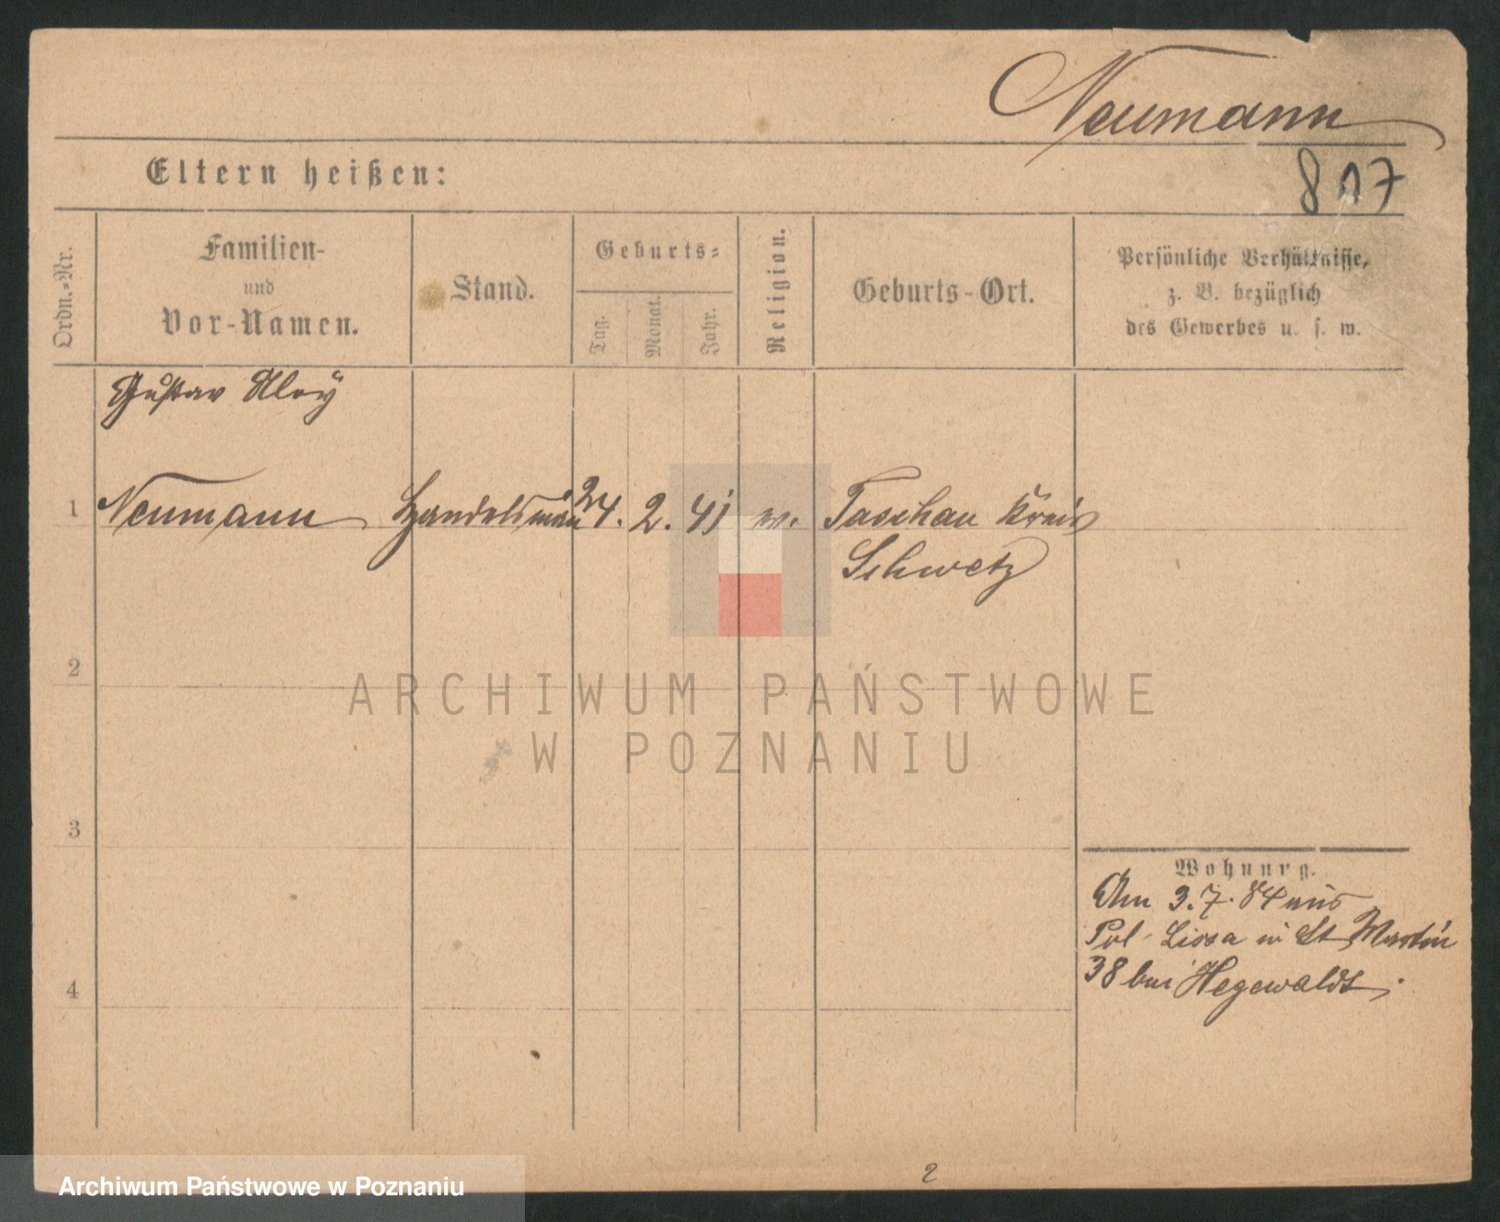 Neumann
Eltern heißen:
817
Ordn.-Nr.
Familien-
und
Vor-Namen.
Stand.
Geburts-
Tag.
Monat.
Jahr.
Religion.
Geburts-Ort.
Persönliche Verhältnisse,
z. B. bezüglich
des Gewerbes u. s. w.
Gustav
1 Neumann Handelsmann 24. 2. 41 Taschau Kreis
Schwetz
ARCHIWUM PAŃSTWOWE
W POZNANIU
2
3
4
Wohnung.
Am 3.7.84 aus
Pol-Lissa in St Martin
38 bei Hegewaldt.
2
Archiwum Państwowe w Poznaniu